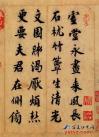 堂永晝來風長
石枕竹簟生清光
文園肺渴厭煩熱
更要夫君在側傍